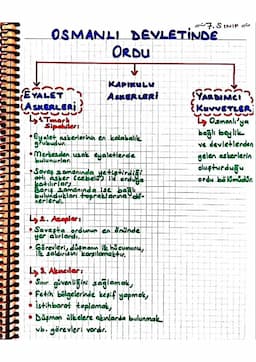 7. SINIF
OSMANLI DEVLETİNDE
ORDU
EYALET
ASKERLERİ
KAPIKULU
ASKERLERİ
YARDIMCI
KUVVETLER
1. Tımarlı
Sipahiler:
• Eyalet askerlerinin en kalabalık
grubudur.
• Merkezden uzak eyaletlerde
bulunurlar.
• Savaş zamanında yetiştirdiği
atlı asker (cebelü) ile orduya
katılırlar,
Barış zamanında ise bağlı
bulundukları topraklarına
2. Azaplar:
• Savaşta ordunun en önünde
yer alırlardı.
• Görevleri, düşmanın ilk hücumunu,
ilk saldırısını karşılamaktı.
3. Akıncılar:
• Sınır güvenliğini sağlamak,
• Fetih bölgelerinde keşif yapmak,
• İstihbarat toplamak,
• Düşman ülkelere akınlarda bulunmak
vb. görevleri vardır.
Osmanlı'ya
bağlı beylik
ve devletlerden
gelen askerlerin
oluşturduğu
ordu bölümüdür.